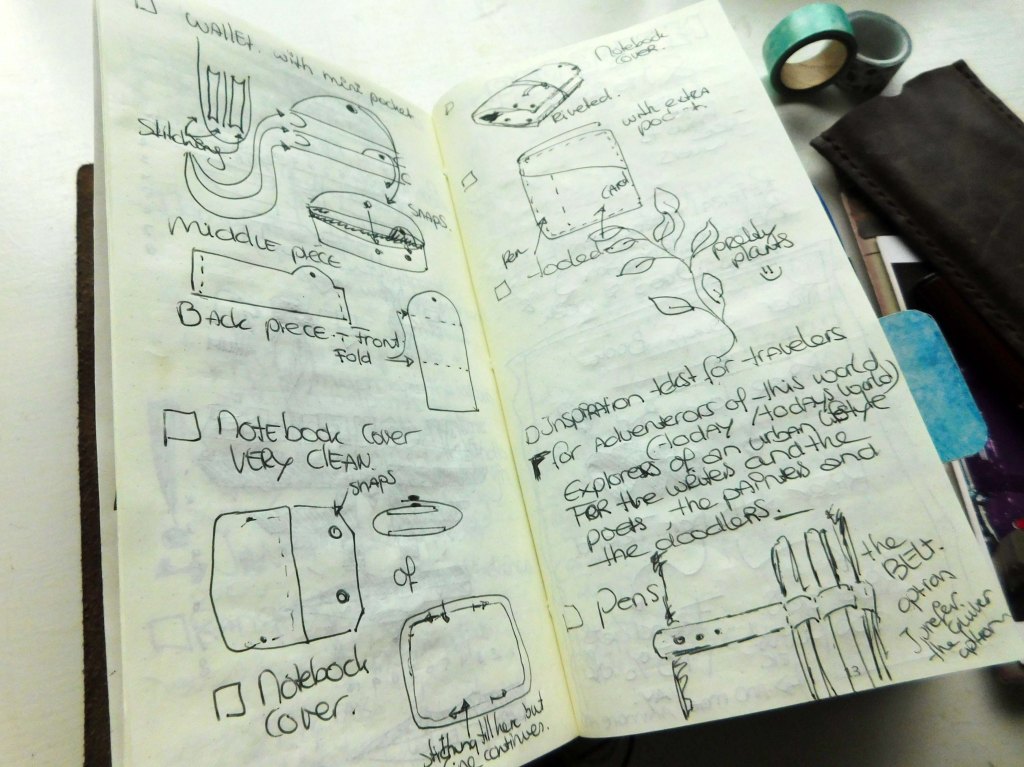 WALLET. with mini pocket
Stitching.
SNAPS.
MIDDLE piece
BACK piece. + Front
Fold
Notebook cover
VERY CLEAN.
SNAPS
of
Notebook
cover.
Stitching till here but
line continues.
Notebook
cover.
Riveted.
with extra
CARDS
Pen
pretty
plants
Inspiration tekst for travelers
For Adventerors of this world
(today / todays world)
Explorers of an urban lifestyle
FOR the writers and the
poets, the painters and
the doodlers.
Pens
the
BELT.
option
13
option